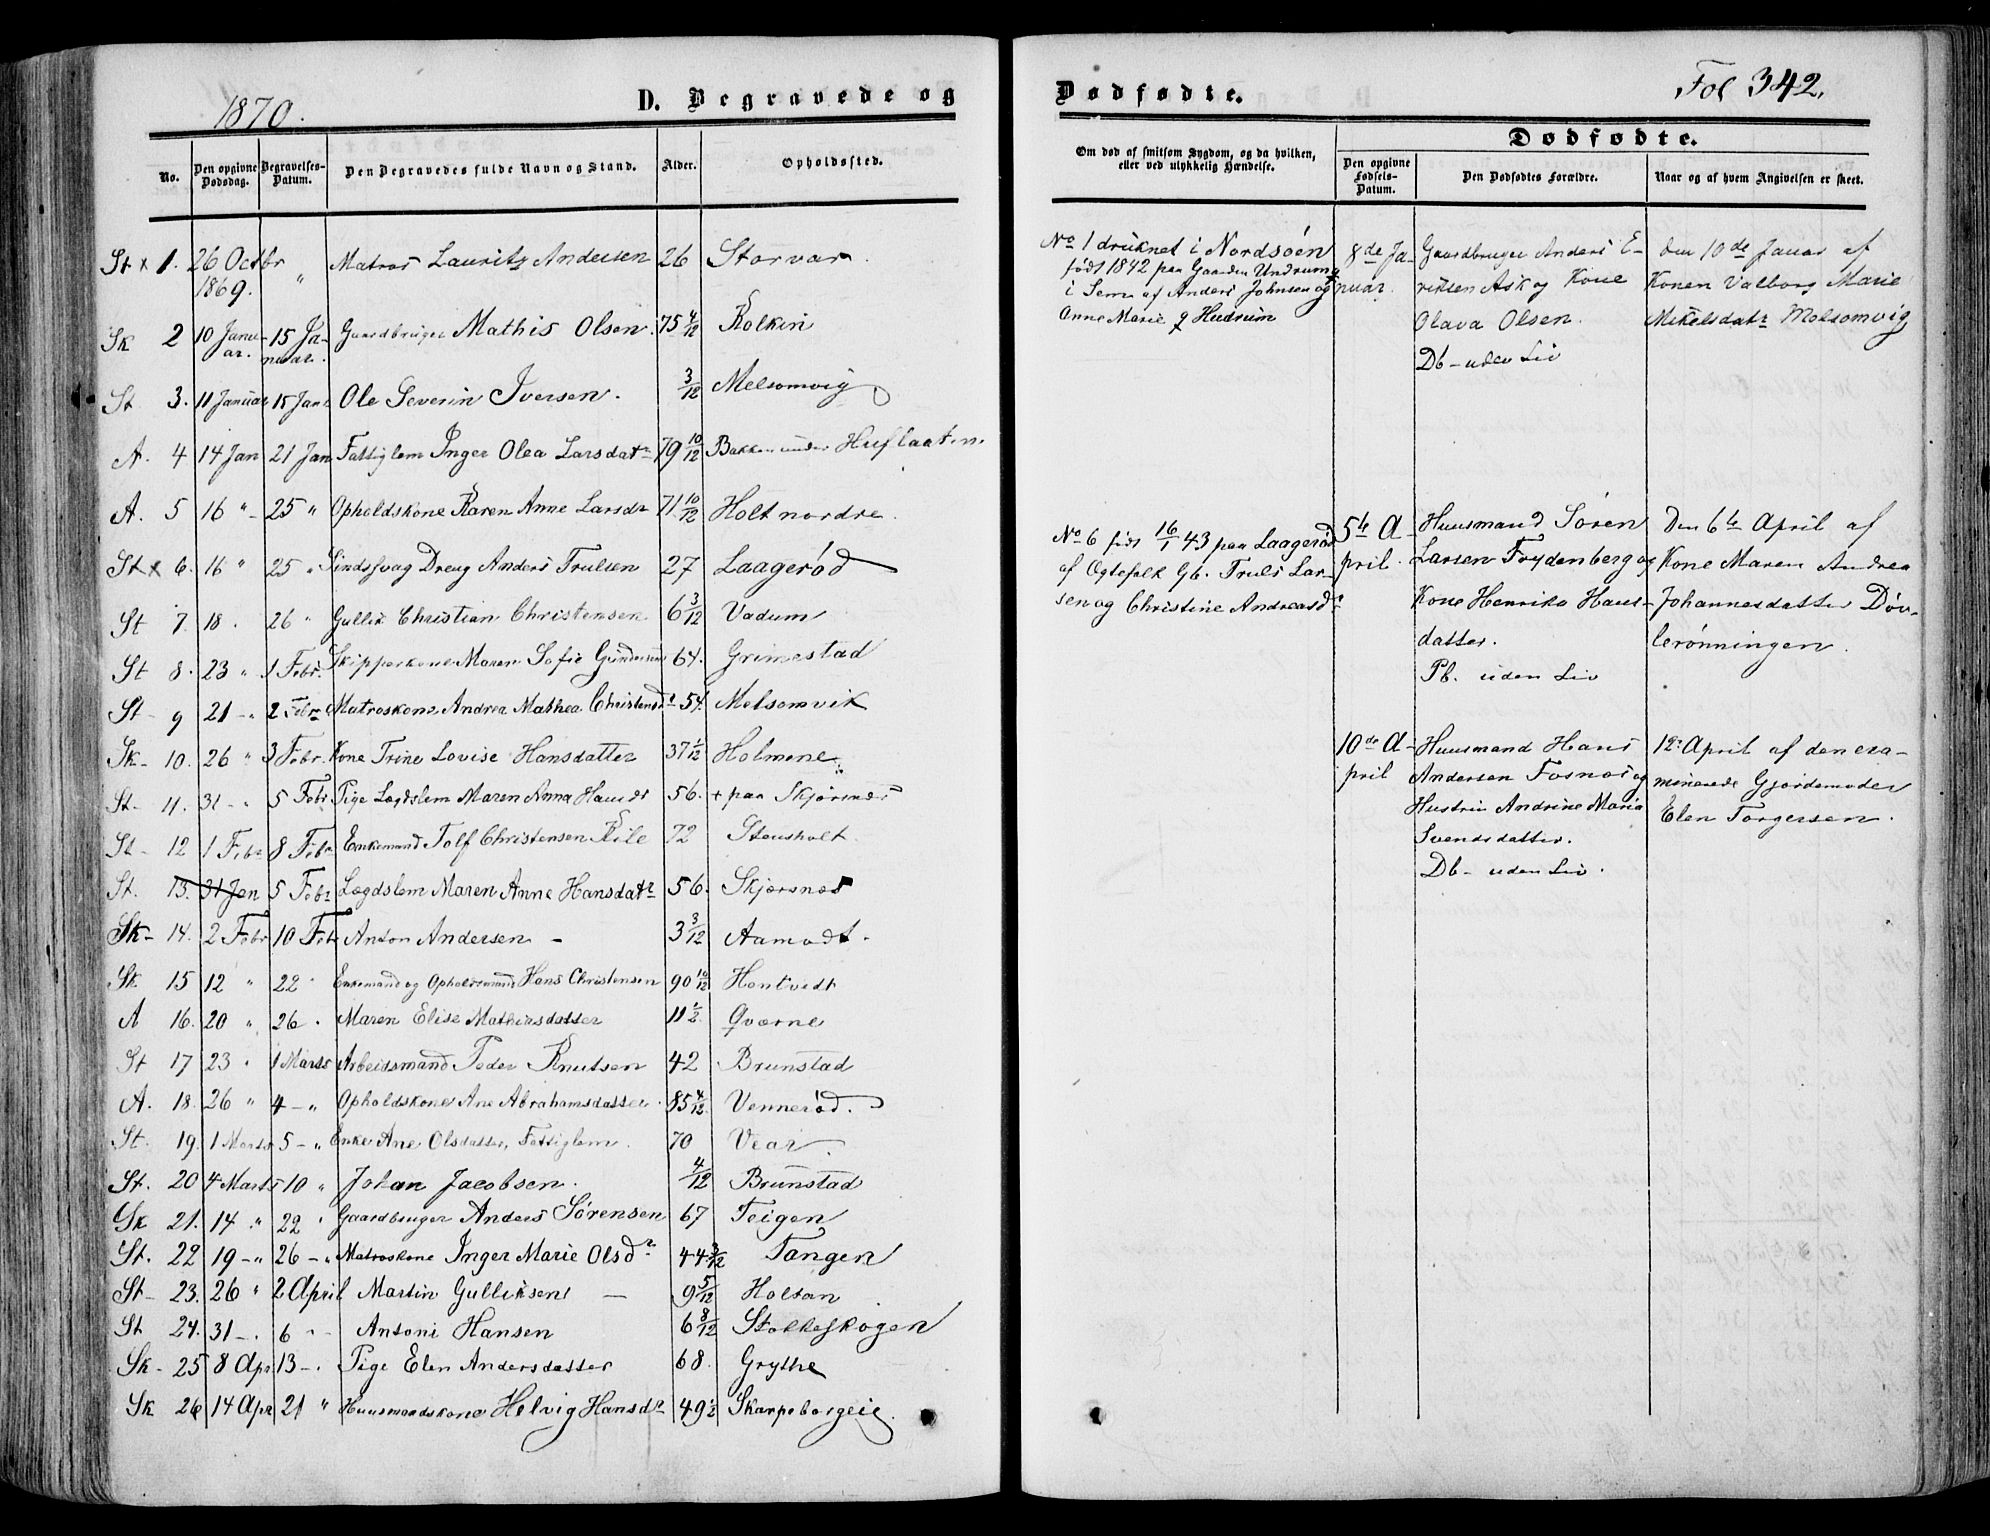 1870.
D. Begravede og
No.
Den opgivne Dødsdag.
Begravelses-Datum.
Den Begravedes fulde Navn og Stand.
Alder.
Opholdssted.
St x 1. 26 Octbr 1869. " Matros Lauritz Andersen 26 Storvar.
Sk 2 10 Januar. 15 Januar. Gaardbruger Mathis Olsen. 75 4/12 Rolkin
St 3. 11 Januar 15 Janr Ole Severin Iversen. 3/12 Melsomvig
A. 4 14 Jan 21 Jan Fattiglem Inger Olea Larsdatr 79 10/12 Bakken under Huflaaten
A. 5 16 " 25 " Opholdskone Karen Anne Larsdr 71 10/12 Holt nordre.
St x 6. 16 " 25 " Sindssvag Dreng Anders Trulsen 27 Laagerød
St 7. 18. 26 " Gullik Christian Christensen 6 3/12 Vadum
St 8. 23 " 1 Febr. Skipperkone Maren Sofie Gundersen 64. Grimestad
St - 9 21 - " 2 Febr Matroskone Andrea Mathea Christensdr 54. Melsomvik
Sk - 10. 26 " 3 Febr. Kone Trine Lovise Hansdatter 37 1/12 Holmene
St - 11. 31 - " 5 Febr Pige Lægdslem Maren Anna Hansdr 56. + paa Skjærsnæs
St - 12 1 Febr 8 Febr Enkemand Tolf Christensen Kile 72 Stensholt.
St. 13. 31 Jan 5 Febr Lægdslem Maren Anne Hansdatr 56. Skjærsnæs
Sk - 14. 2 Febr 10 Feb Anton Andersen - 3 3/12 Aamodt.
Sk 15 12 " 22 " Enkemand og Opholdsmand Hans Christensen 90 10/12 Hontvedt
A 16. 20 " 26 . Maren Elise Mathiasdatter 11 1/2 Qværne
St 17 23 . 1 Marts Arbeidsmand Peder Knutsen 42 Brunstad
A. 18. 26 " 4 - " Opholdskone Ane Abrahamsdatter. 85 4/12 Vennerød.
St. 19. 1 Marts 5 - " Enke Ane Olsdatter, Fattiglem. 70 Vear.
St. 20 4 Marts 10 " Johan Jacobsen. 4/12 Brunstad
Sk 21. 14 " 22 " Gaardbruger Anders Sørensen 67 Teigen
St. 22 19 - " 26 - " Matroskone Inger Marie Olsdr 44 3/12 Tangen
St - 23. 26 " 2 April Martin Gulliksen - 9 5/12 Holtan
St 24. 31 - . 6 " - Antoni Hansen 6 8/12 Stokkeskogen
Sk - 25 8 Apr 13 - . Pige Elen Andersdatter 68. Grythe
Sk 26 14 Apr 21 " Huusmandskone Helvig Hansdr 49 1/2 Skarpeborgeie.
Dødfødte.
Fol 342.
Om død af smitsom Sygdom, og da hvilken,
eller ved ulykkelig Hændelse.
Dødfødte.
Den opgivne Fødsels-Datum.
Den Dødfødtes Forældre.
Naar og af hvem Angivelsen er skeet.
No 1 druknet i Nordsøen
født 1842 paa Gaarden Undrum
i Sem af Anders Johnsen og
Anne Marie
8de Januar.
Gaardbruger Anders E-
riksen Ask og Kone
Olava Olsen.
Db - uden Liv
Den 10de Januar af
Konen Valborg Marie
Mikelsdatr Melsomvig
No 6 født 16/1 43 paa Laagerød
af Ægtefolk Gb. Truls Lar-
sen og Christine Andreasdr
5te A-
pril.
Huusmand Søren
Larsen Frydenberg og
Kone Henrika Hans-
datter.
Pb. uden Liv
Den 6te April af
Kone Maren Andrea
Johannesdatter Døv-
lerønningen.
10de A-
pril
Huusmand Hans
Andersen Fosnæs og
Hustru Andrine Maria
Svendsdatter.
Db - uden Liv.
12. April af den exa-
minerede Gjordemoder
Elen Torgersen.